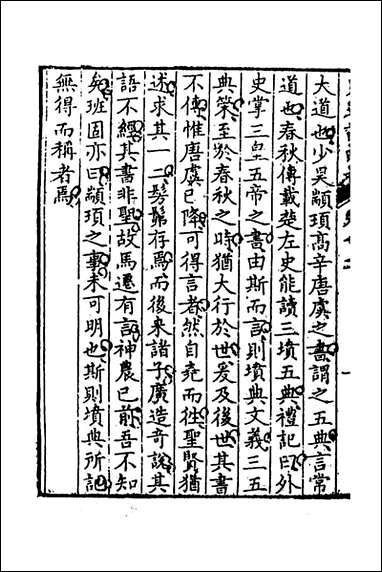 大道也少昊顓頊高辛唐虞之書謂之五典言常
道也春秋傳載楚左史能讀三墳五典禮記曰外
史掌三皇五帝之書由斯而言則墳典文義三五
典策至於春秋之時猶大行於世爰及後世其書
不傳惟唐虞已降可得言者然自堯而往聖賢猶
述求其一二髣髴存焉而後來諸子廣造奇說其
語不經其書非聖故馬遷有言神農已前吾不知
矣班固亦曰顓頊之事未可明也斯則墳典所記
無得而稱者焉